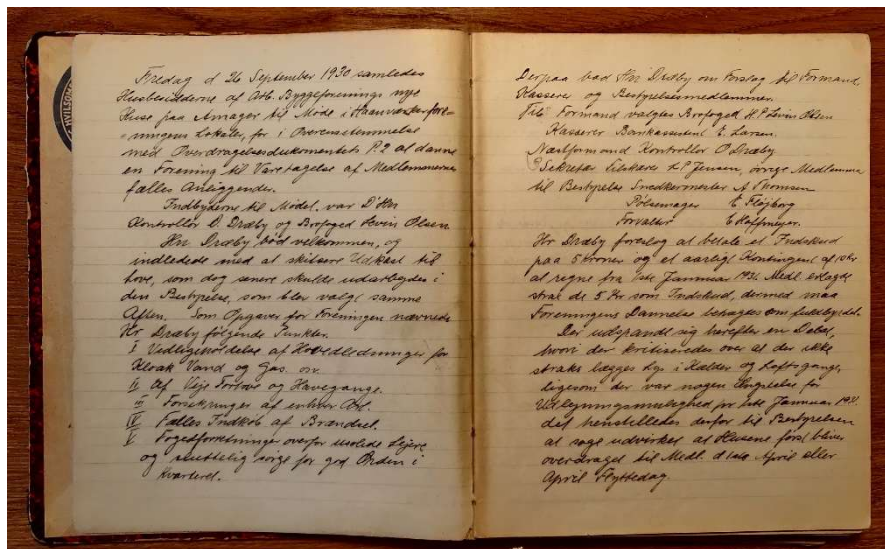 Fredag d 26 September 1930 samledes
Husbesidderne af Arb. Byggeforenings nye
Huse paa Amager til Møde i Haandværkerfore-
ningens Lokaler, for i Overensstemmelse
med Overdragelsesdokumentets P. 2 at danne
en Forening til Varetagelse af Medlemmernes
fælles Anliggender.
Indbyderne til Mødet var D'Hrr
Kontrollør O. Dræby og Brofoged Levin Olsen.
Hr. Dræby bød velkommen, og
indledede med at skitsere Udkast til
love, som dog senere skulde udarbejdes i
den Bestyrelse, som blev valgt samme
Aften. Som Opgaver for Foreningen nævnede
Hr Dræby følgende Punkter.
I Vedligeholdelse af Hovedledninger for
Kloak Vand og Gas. ov.
II Af Veje Fortove og Havegange.
III Forsikringer af enhver Art.
IV Fælles Indkøb af Brændsel.
V Fogedforretninger overfor usolide Lejere
og sluttelig sørge for god Orden i
Kvarteret.
Derpaa bad Hr Dræby om Forslag til Formand,
Kasserer og Bestyrelsesmedlemmer.
Til Formand valgtes Brofoged H. P Levin Olsen
Kasserer Bankassistent E. Larsen.
Næstformand Kontrollør O Dræby
Sekretær P Jensen, øvrige Medlemmer
til Bestyrelse Snedkermester A Thomsen
Pølsemager E Fløjborg
Forvalter E Hoffmeyer.
Hr Dræby foreslog at betale et Indskud
paa 5 Kroner og et aarligt Kontingent af 10 Kr
at regne fra 1ste Januar 1931. Medl. erlagde
strax de 5 Kr som Indskud, dermed maa
Foreningens Dannelse betragtes som fuldbyrdet.
Der udspandt sig herefter en Debat,
hvori der kritiseredes over at der ikke
straks lægges Lys i Kælder og Loftsgange,
ligesom der var nogen Ængstelse for
Udlejningsmulighed pr 1ste Januar 1931.
det henstilledes derfor til Bestyrelsen
at søge udvirket at Husene først bliver
overdraget til Medl. d 1ste April eller
April Flyttedag.